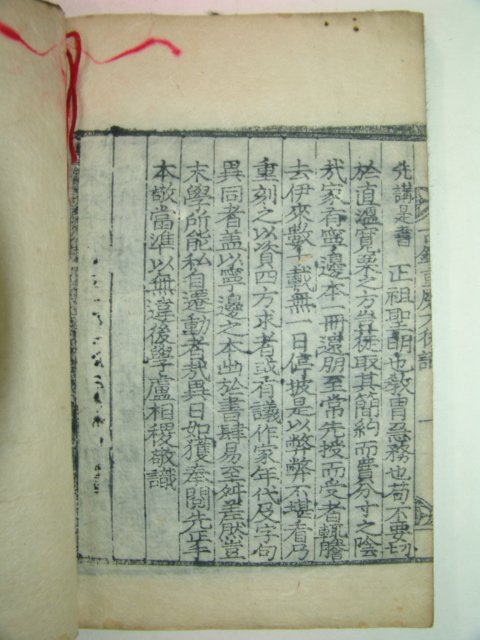 先講是書 正祖聖朝也敎胄急務也苟不要切
於直溫寬栗之方豈徒取其簡約而費分寸之陰
哉家有寧邊本一冊還朋至常先授而受者輒謄
去伊來數載無一日停披是以弊弊不堪看乃
重刻之以資四方求者或有議作家年代及字句
異同者盖以寧邊之本出於書肆易至舛差然豈
末學所能私自遷動者哉異日如獲奉閱先正手
本敬當準以無違後學盧相稷敬識